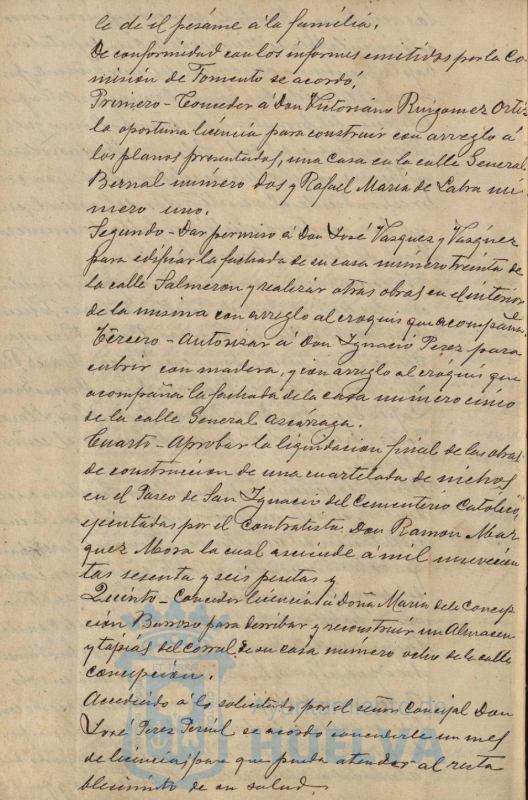 le dé el pesáme á la família.
De conformidad con los informes emitidos por la Co-
misión de Fomento se acordó,
Primero - Conceder á Don Victoriano Ruigomez Ortiz
la oportuna licencia para construir con arreglo á
los planos presentados, una casa en la calle General
Bernal número dos y Rafael María de Labra nu-
mero uno.
Segundo - Dar permiso á Don José Vasquez y Vasquez
para edificar la fachada de su casa número treinta de
la calle Salmeron y realizar otras obras en el interior
de la misma con arreglo al croquis que acompaña.
Tercero - Autorizar á Don Ignacio Perez para
cubrir con madera, y con arreglo al cróquis que
acompaña la fachada de la casa número cinco
de la calle General Azcárraga.
Cuarto - Aprobar la liquidación final de las obras
de construcción de una cuartelada de nichos
en el Paseo de San Ignacio del Cementerio Católico,
ejecutadas por el Contratista Don Ramon Mar-
quez Mora la cual asciende á mil novecien-
tas sesenta y seis pesetas y
Quinto - Conceder licencia á Doña Maria de la Concep-
ción Borroso para derribar y reconstruir un Almacen
y tapias del corral, de su casa número ocho de la calle
Concepción.
Accediendo á lo solicitado por el señor Concejal Don
José Perez se acordó concederle un mes
de licencia, para que pueda atender al resta-
blecimiento de su salud.
Ayuntamiento de
HUELVA